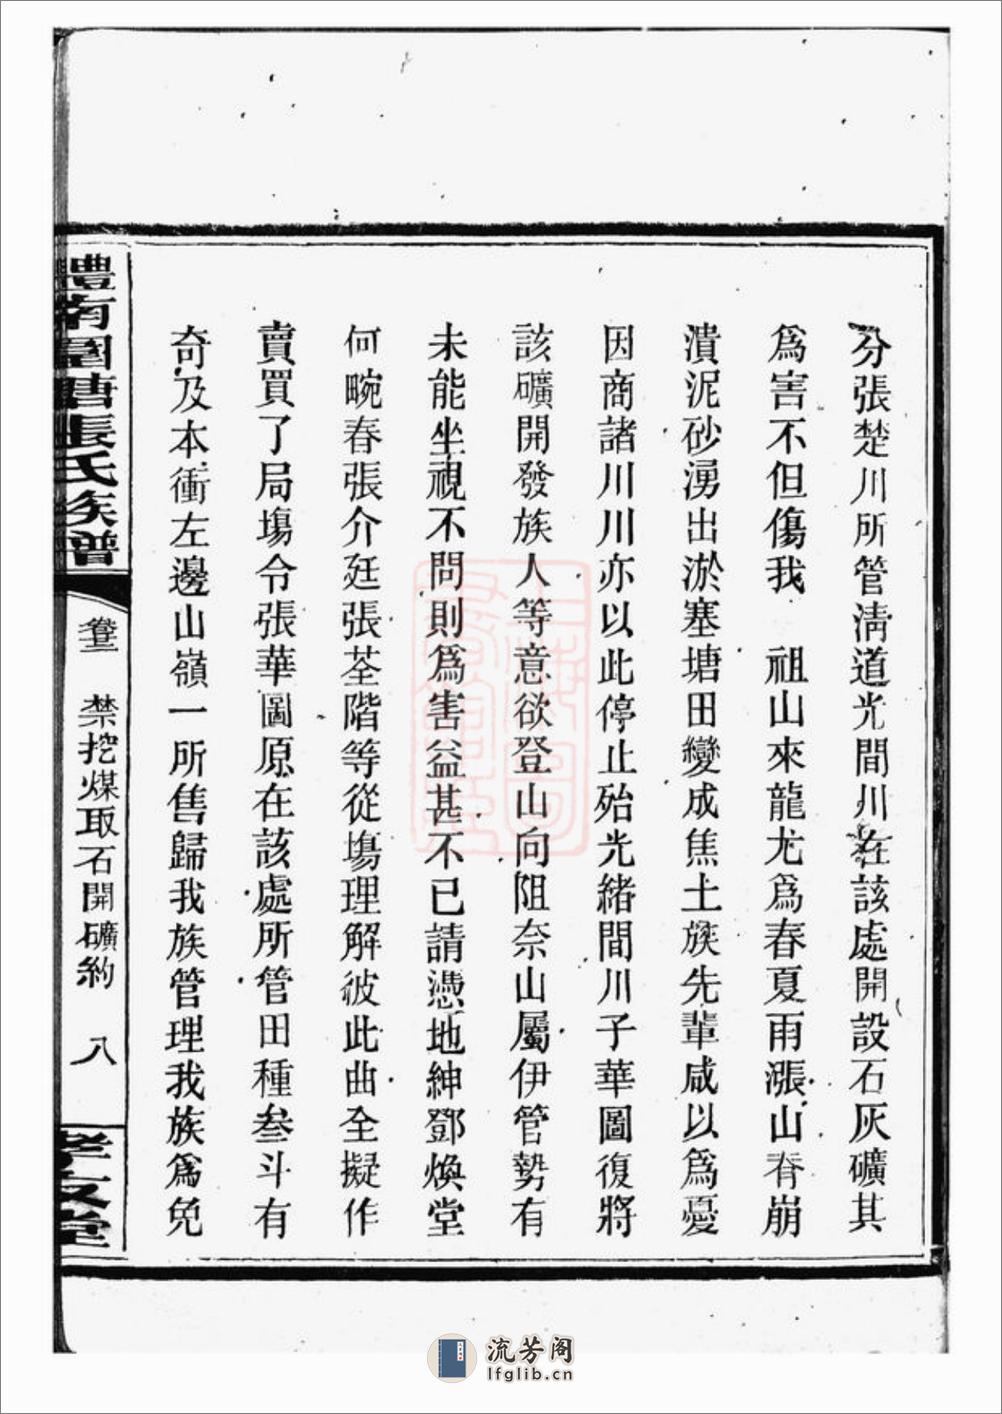 分張楚川所管淸道光間川在該處開設石灰礦其
爲害不但傷我　祖山來龍尤爲春夏雨漲山脊崩
潰泥砂湧出淤塞塘田變成焦土族先輩咸以爲憂
因商諸川川亦以此停止殆光緒間川子華圖復將
該礦開發族人等意欲登山向阻奈山屬伊管勢有
未能坐視不問則爲害益甚不已請憑地紳鄧煥堂
何畹春張介廷張荃階等從塲理解彼此曲全擬作
賣買了局塲令張華圖原在該處所管田種叁斗有
奇及本衝左邊山嶺一所售歸我族管理我族爲免
醴南圖塘張氏族譜
卷二
禁挖煤取石開礦約
八
孝友堂
流芳阁
lfglib.cn